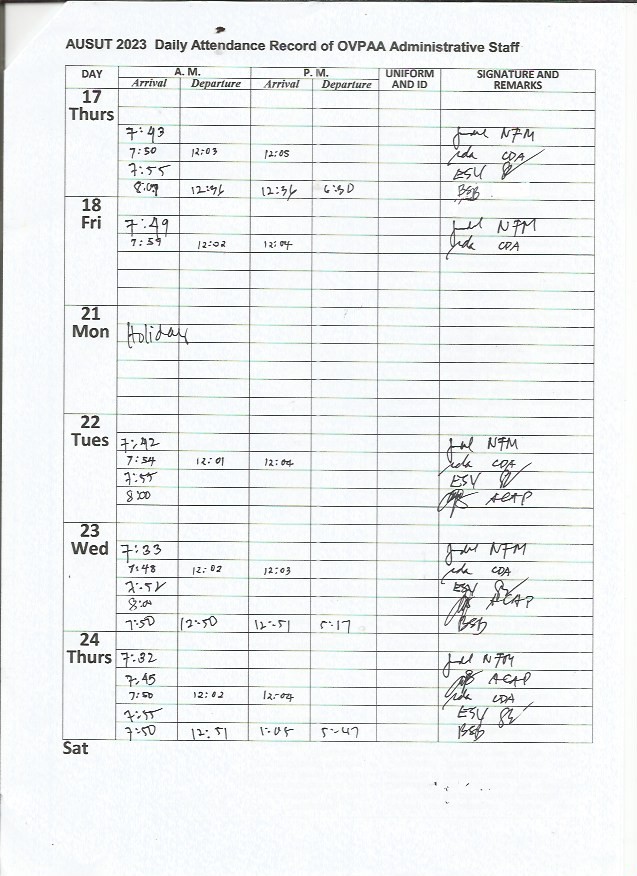 AUSUT 2023 Daily Attendance Record of OVPAA Administrative Staff
DAY A. M. P. M. UNIFORM AND ID SIGNATURE AND REMARKS
Arrival Departure Arrival Departure
17
Thurs
7:43 NFM
7:50 12:03 12:05 CDA
7:55 ESV
8:09 12:36 12:36 6:30 BSB
18
Fri
7:49 NFM
7:59 12:02 12:04 CDA
21
Mon
Holiday
22
Tues
7:42 NFM
7:54 12:01 12:04 CDA
7:55 ESV
8:00 ACAP
23
Wed
7:33 NFM
7:48 12:02 12:03 CDA
ESV
ACAP
7:50 12:50 12:51 5:17 BSB
24
Thurs
7:32 NFM
7:45 ACAP
7:50 12:02 12:04 CDA
7:55 ESV
7:50 12:51 5:47 BSB
Sat